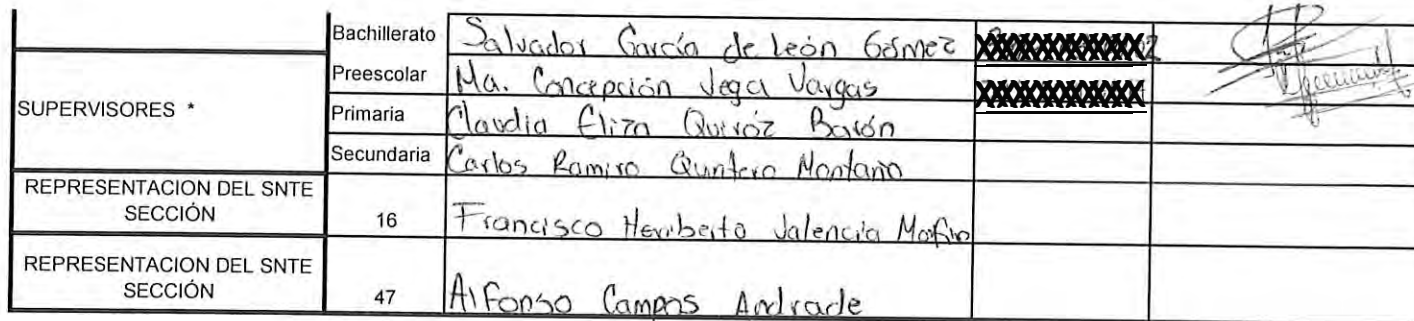 Bachillerato Salvador García de León Gómez
Preescolar Ma. Concepción Vega Vargas
SUPERVISORES *
Primaria Claudia Eliza Quiróz Barón
Secundaria Carlos Ramiro Quintero Montaño
REPRESENTACION DEL SNTE
SECCIÓN
16 Francisco Heriberto Valencia
REPRESENTACION DEL SNTE
SECCIÓN
47 Alfonso Campos Andrade